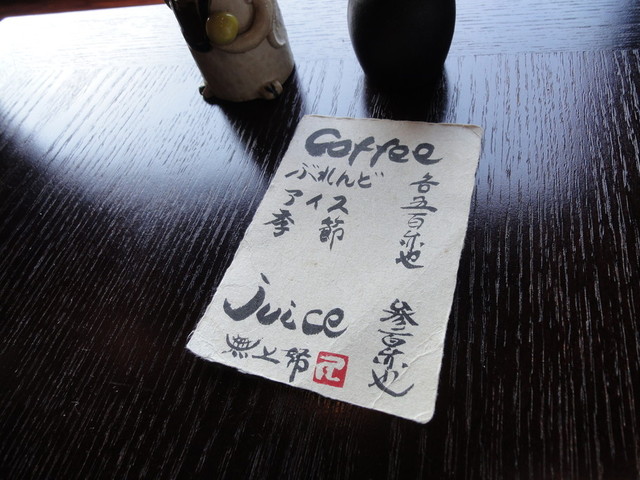 Coffee
ぶれんど
アイス
季節
各五百円也
juice
無上節
参百円也